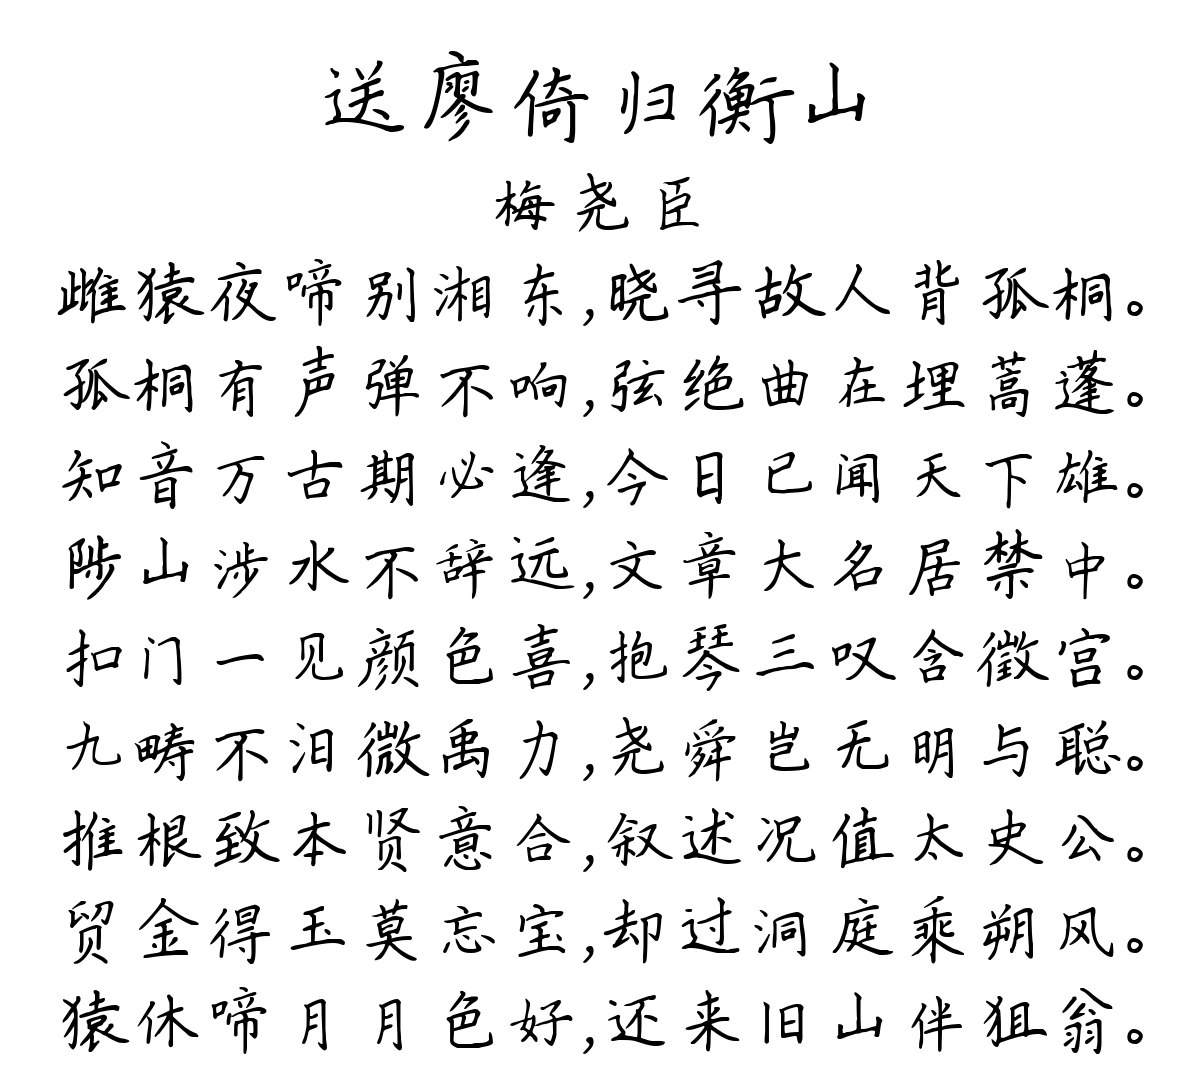 送廖倚归衡山
梅尧臣
雌猿夜啼别湘东,晓寻故人背孤桐。
孤桐有声弹不响,弦绝曲在埋蒿蓬。
知音万古期必逢,今日已闻天下雄。
陟山涉水不辞远,文章大名居禁中。
扣门一见颜色喜,抱琴三叹含徵宫。
九畴不汨微禹力,尧舜岂无明与聪。
推根致本贤意合,叙述况值太史公。
贸金得玉莫忘宝,却过洞庭乘朔风。
猿休啼月月色好,还来旧山伴狙翁。